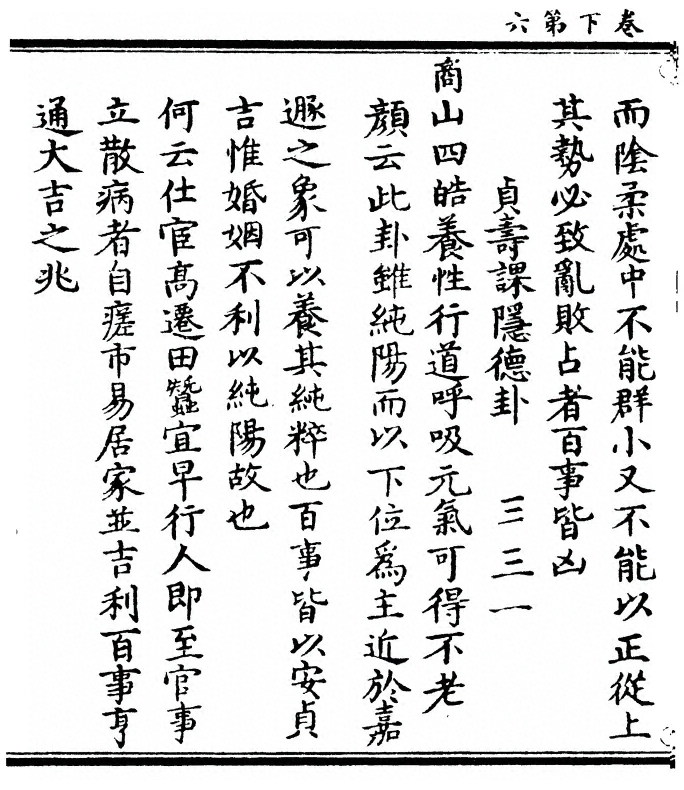 卷下第六
而陰柔處中不能群小又不能以正從上
其勢必致亂敗占者百事皆凶
貞壽課隱德卦 三三一
商山四皓養性行道呼吸元氣可得不老
顔云此卦雖純陽而以下位爲主近於嘉
遯之象可以養其純粹也百事皆以安貞
吉惟婚姻不利以純陽故也
何云仕宦高遷田蠶宜早行人即至官事
立散病者自瘥市易居家並吉利百事亨
通大吉之兆